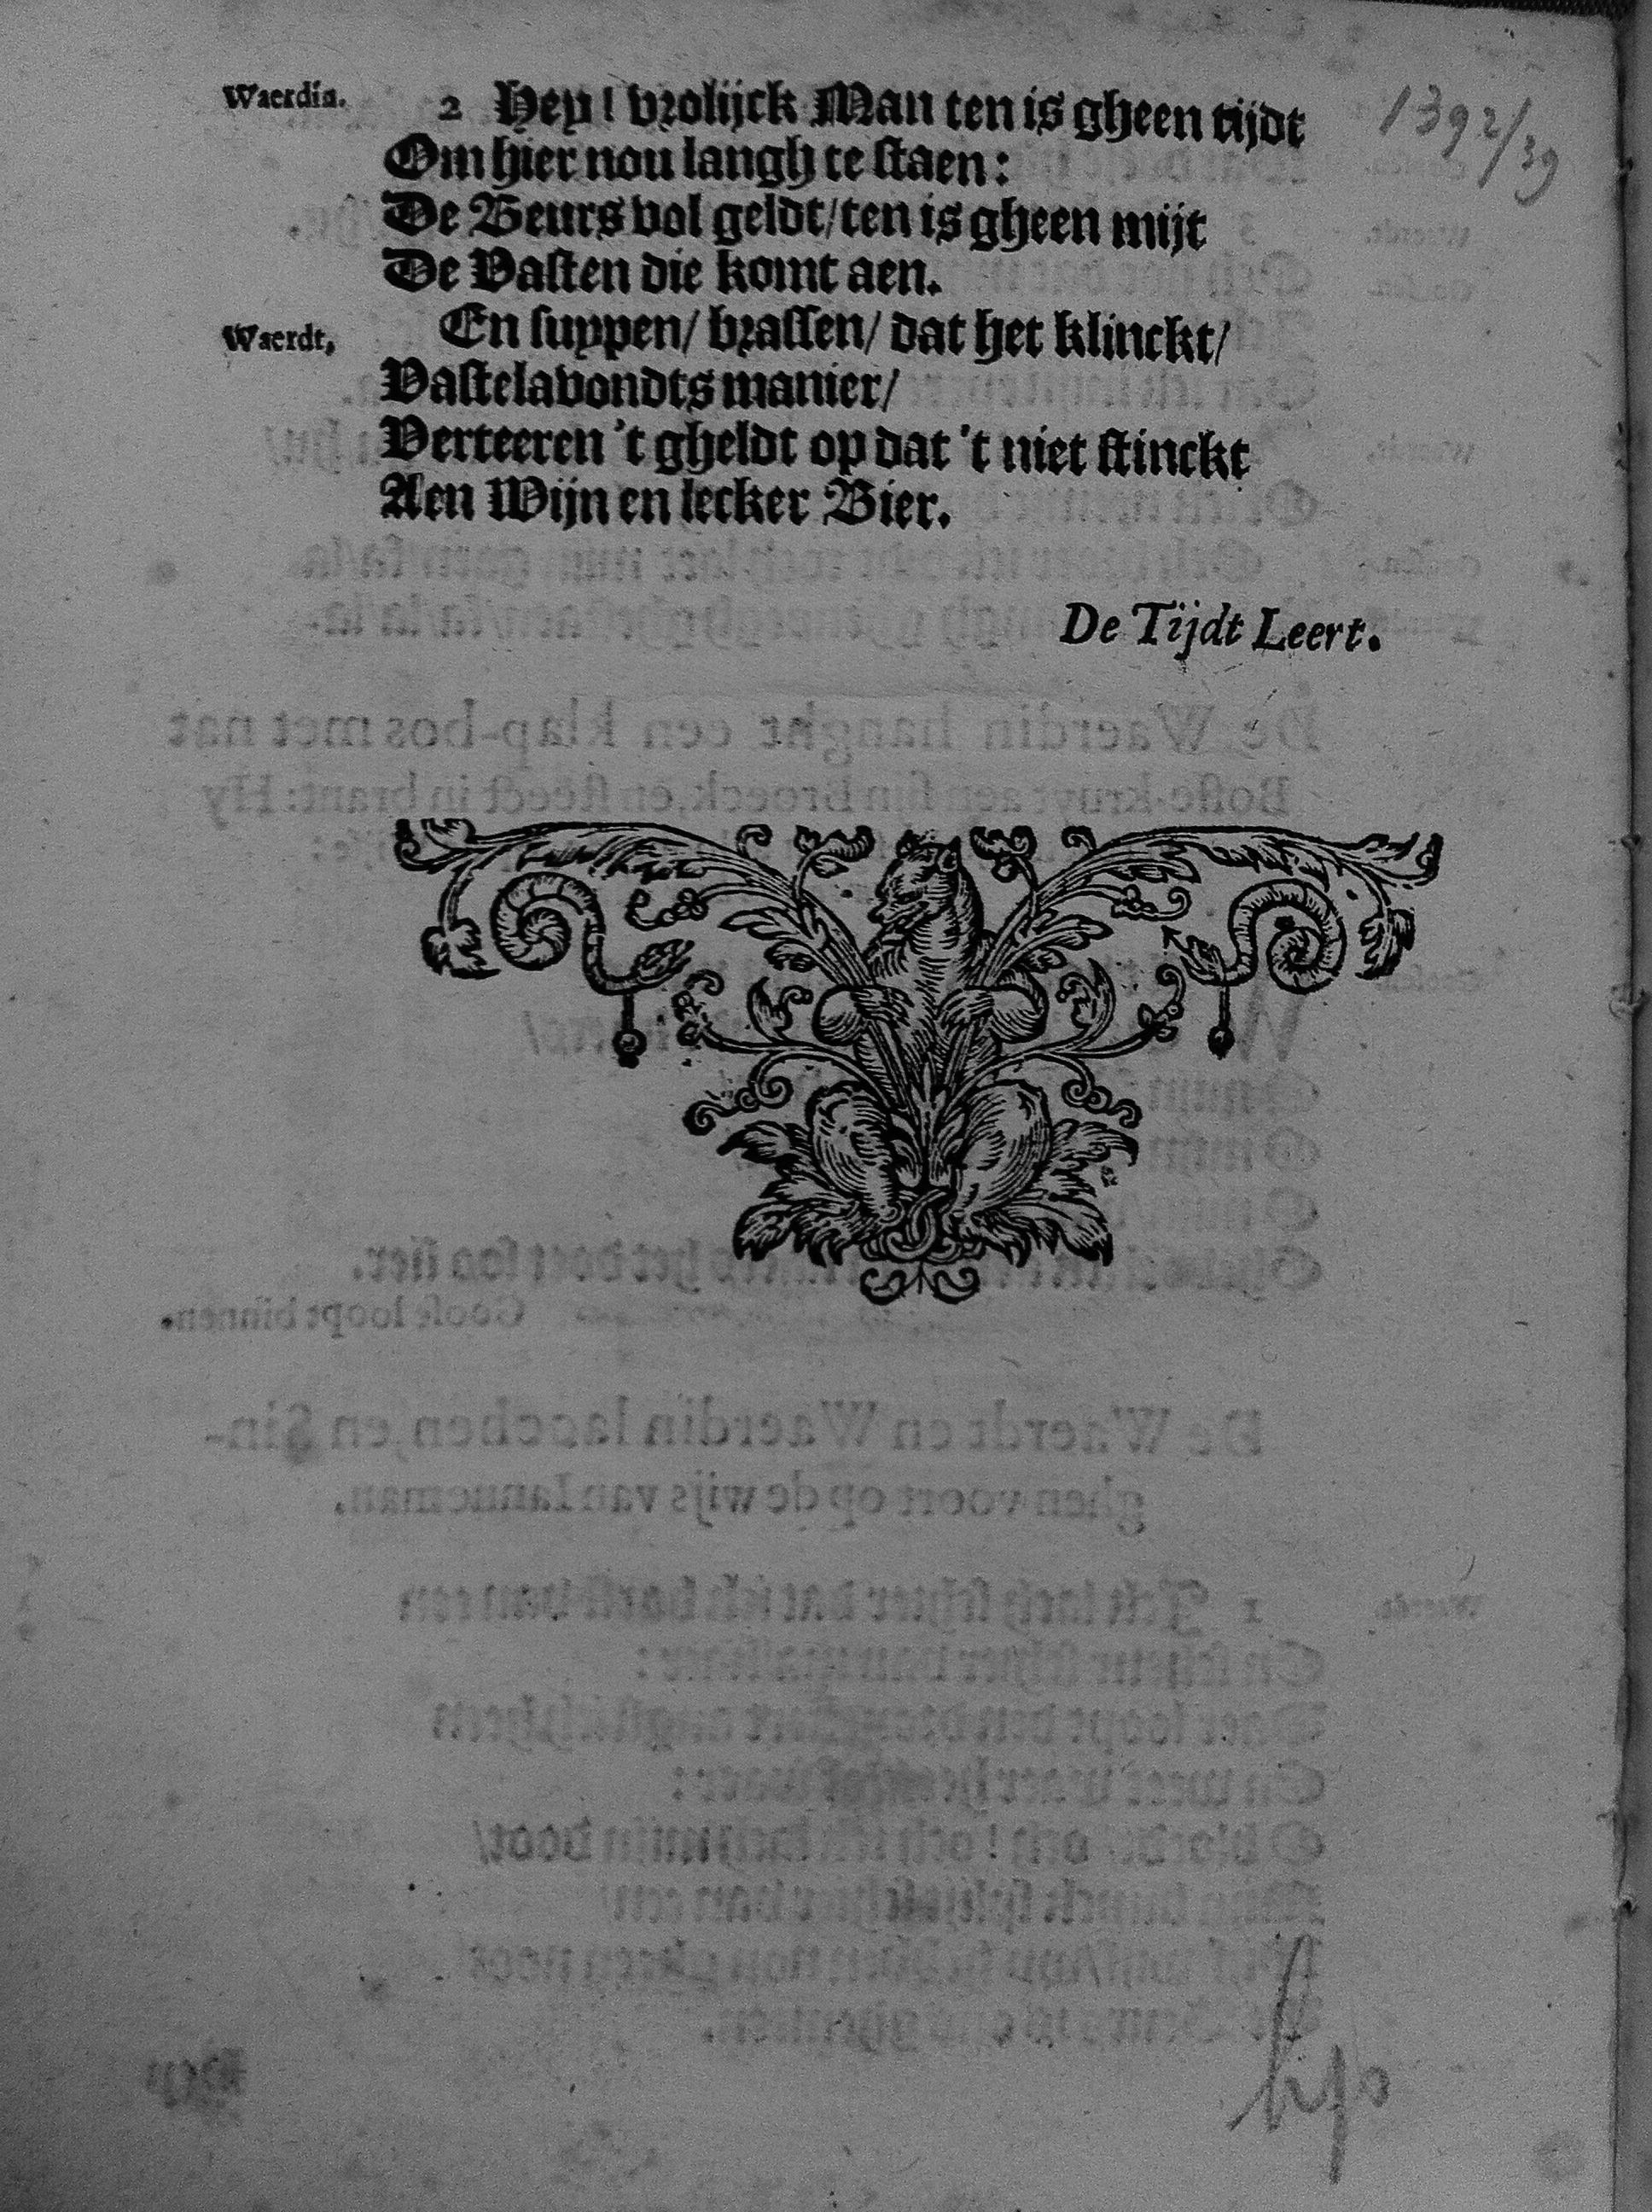 Waerdin. 2 Hey! vrolijck Man ten is gheen tijdt
1392/39
Om hier nou langh te staen:
De Beurs vol geldt/ten is gheen mijt
De Vasten die komt aen.
Waerdt, En suypen/ brassen/ dat het klinckt/
Vastelavondts manier/
Verteeren 't gheldt op dat 't niet stinckt
Aen Wijn en lecker Bier.
De Tijdt Leert.